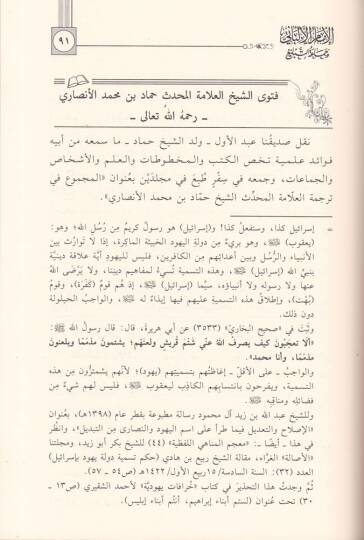 الإمام الألباني
٩١
فتوى الشيخ العلامة المحدث حماد بن محمد الأنصاري
ـ رحمهُ اللهُ تعالى ـ
نقل صديقُنا عبد الأول ـ ولد الشيخ حماد ـ ما سمعه من أبيه
فوائد علمية تخص الكتب والمخطوطات والعلم والأشخاص
والجماعات، وجمعه في سِفْرٍ طُبعَ في مجلدَيْن بعُنوان «المجموع في
ترجمة العلّامة المحدِّث الشيخ حمّاد بن محمد الأنصاري».
= إسرائيل كذا، وستفعلُ كذا! و(إسرائيل) هو رسولٌ كريمٌ مِن رُسل الله؛ وهو:
(يعقوب) ﷺ، وهو بريءٌ مِن دولةِ اليهود الخبيثة الماكِرة، إذا لا توارُثَ بين
الأنبياء والرُّسل وبين أعدائِهم مِن الكافرين، فليس لليهودِ أيَّةُ علاقة دينيَّة
بنبيِّ الله (إسرائيل) ﷺ، وهذه التسمية تُسيءُ لمفاهيم ديننا، ولا يَرْضَى اللهُ
عنها ولا رسولُه ولا أنبياؤه، سيَّما (إسرائيل) ﷺ، إذ هُم قومٌ (كَفَرَة)، وقومٌ
(بُهْت)، وإطلاقُ هذه التسميةِ عليهم فيها إيذاءٌ له ﷺ، والواجبُ الحيلولة
دون ذلك.
وثبَت في «صحيحِ البخاريّ» (٣٥٣٣) عن أبي هريرةَ، قال: قال رسولُ الله ﷺ:
«ألا تعجَبُونَ كيف يصرفُ اللهُ عنّي شَتْمَ قُريش ولعنَهُم؛ يشتمونَ مذمّمًا ويلعنونَ
مذمّمًا، وأنا محمد».
والواجبُ ـ على الأقلّ ـ إغاظتُهم بتسميتِهم (يهود)؛ لأنهم يشمئزُّون مِن هذه
التسمية، ويفرحون بانتسابِهم الكاذبِ ليعقوب ﷺ، فليس لهم شيءٌ مِن
فضائلِه ومناقبِه ﷺ.
وللشيخ عبد الله بن زيد آل محمود رسالة مطبوعة بقطر عام (١٣٩٨هـ)، بعُنوان
«الإصلاح والتعديل فيما طرأ على اسم اليهود والنصارى مِن التبديل»، وانظُر
في هذا ـ أيضًا ـ: «معجم المناهي اللفظية» (٤٤) للشيخ بكر أبو زيد، ومجلتنا
«الأصالة» الغرّاء، مقالة الشيخ ربيع بن هادي (حكم تسمية دولة يهود بإسرائيل)
العدد (٣٢): السنة السادسة/ ١٥ ربيع الأول/ ١٤٢٢هـ (ص٥٤ ـ ٥٧).
ثُمَّ وجدتُ هذا التحذيرَ في كتاب «خُرافات يهوديَّة» لأحمد الشقيري (ص١٣ ـ
٣٠) تحت عُنوان (لستم أبناء إبراهيم، أنتُم أبناءُ إبليس).